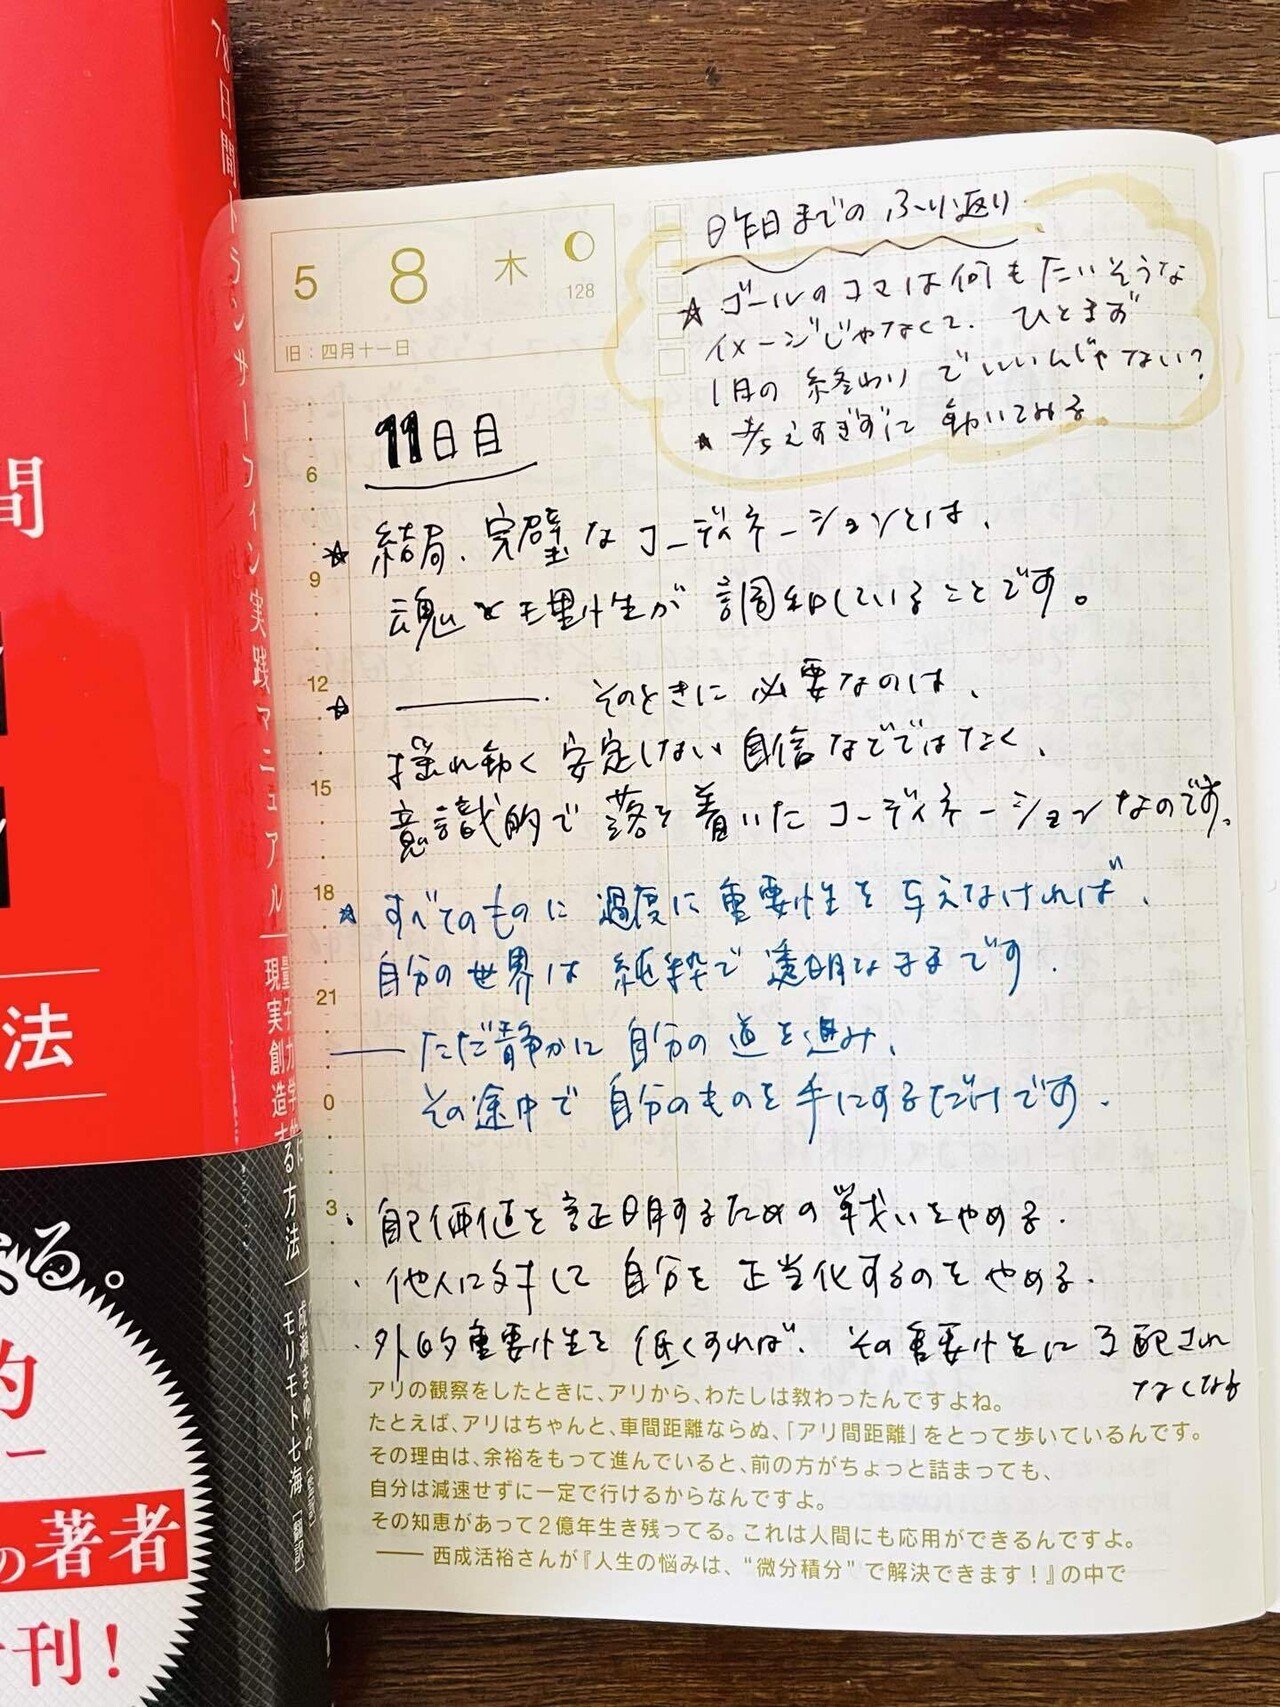 78日間トランサーフィン実践マニュアル
量子力学的に
現実創造する方法
成瀬まゆみ
モリモト七海[翻訳]
間
法
なる。
的
の著者
刊!
5 8 木
128
旧:四月十一日
昨日までのふり返り
☆ ゴールのコマは何もたいそうな
イメージじゃなくて、ひとまず
1日の終わりでいいんじゃない?
★ 考えすぎずに動いてみる。
11日目
6
☆ 結局、完璧なコーディネーションとは、
9
魂と理性が調和していることです。
12
☆ ―― そのときに必要なのは、
揺れ動く安定しない自信などではなく、
15
意識的で落ち着いたコーディネーションなのです。
18
☆ すべてのものに過度に重要性を与えなければ、
自分の世界は純粋で透明なままです。
21
―― ただ静かに自分の道を進み、
0
その途中で自分のものを手にするだけです。
3
・自己価値を証明するための戦いをやめる。
・他人に対して自分を正当化するのをやめる。
・外的重要性を低くすれば、その重要性に支配され
なくなる
アリの観察をしたときに、アリから、わたしは教わったんですよね。
たとえば、アリはちゃんと、車間距離ならぬ、「アリ間距離」をとって歩いているんです。
その理由は、余裕をもって進んでいると、前の方がちょっと詰まっても、
自分は減速せずに一定で行けるからなんですよ。
その知恵があって2億年生き残ってる。これは人間にも応用ができるんですよ。
―― 西成活裕さんが『人生の悩みは、“微分積分”で解決できます!』の中で